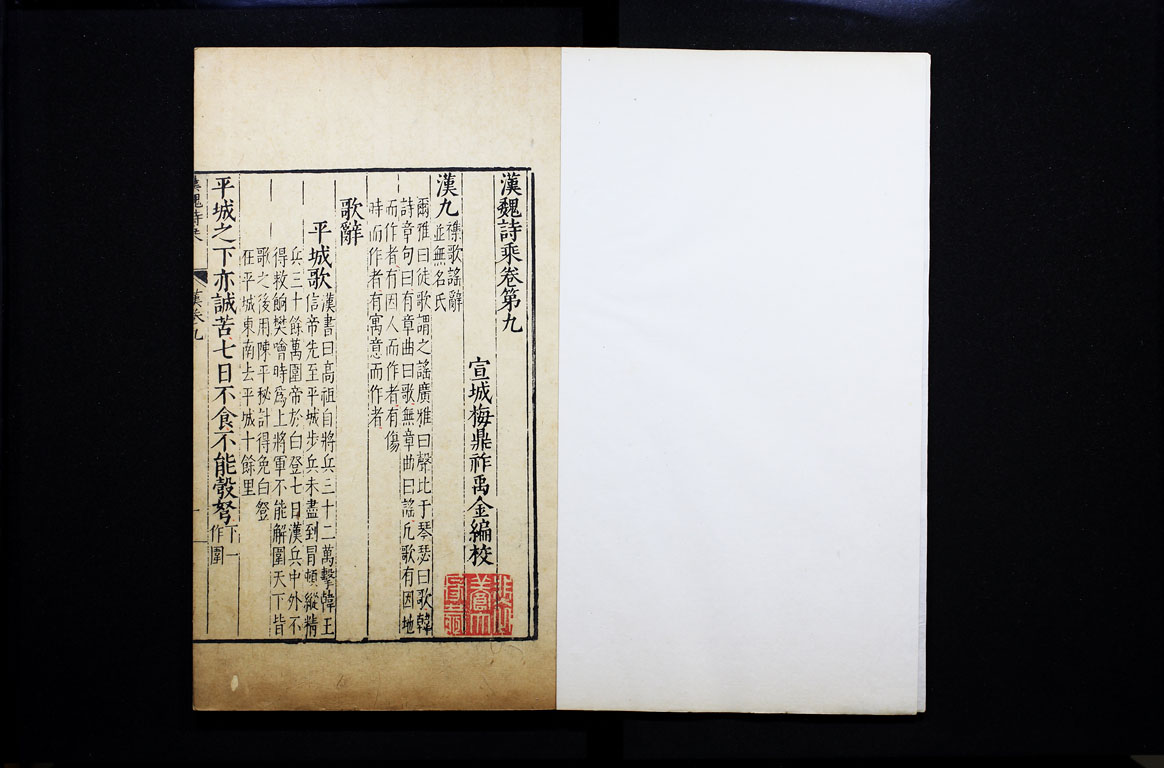 漢魏詩乘卷第九
宣城梅鼎祚禹金編校
漢九 襍歌謡辭並無名氏
爾雅曰徒歌謂之謡廣雅曰聲比于琴瑟曰歌韓
詩章句曰有章曲曰歌無章曲曰謡凡歌有因地
而作者有因人而作者有傷
時而作者有寓意而作者
歌辭
平城歌 漢書曰高祖自將兵三十二萬擊韓王
信帝先至平城步兵未盡到冒頓縱精
兵三十餘萬圍帝於白登七日漢兵中外不
得救餉樊噲時爲上將軍不能解圍天下皆
歌之後用陳平秘計得免白登
在平城東南去平城十餘里
平城之下亦誠苦七日不食不能彀弩 下一作圍
漢魏詩乘
漢卷九